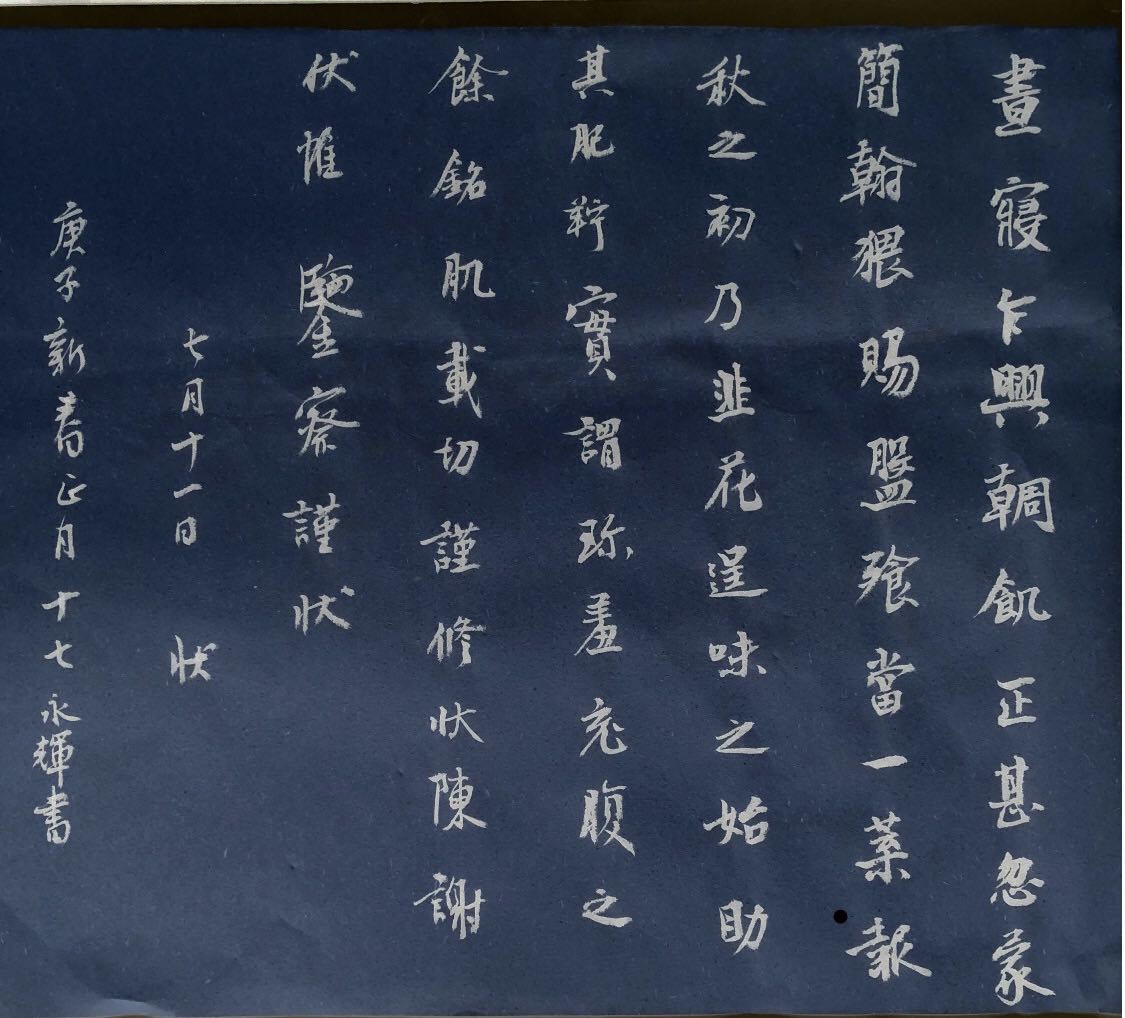 晝寢乍興輖飢正甚忽蒙
簡翰猥賜盤飧當一葉報
秋之初乃韭花逞味之始助
其肥羜實謂珍羞充腹之
餘銘肌載切謹修狀陳謝
伏惟 鑒察謹狀
七月十一日 狀
庚子新春正月十七永輝書